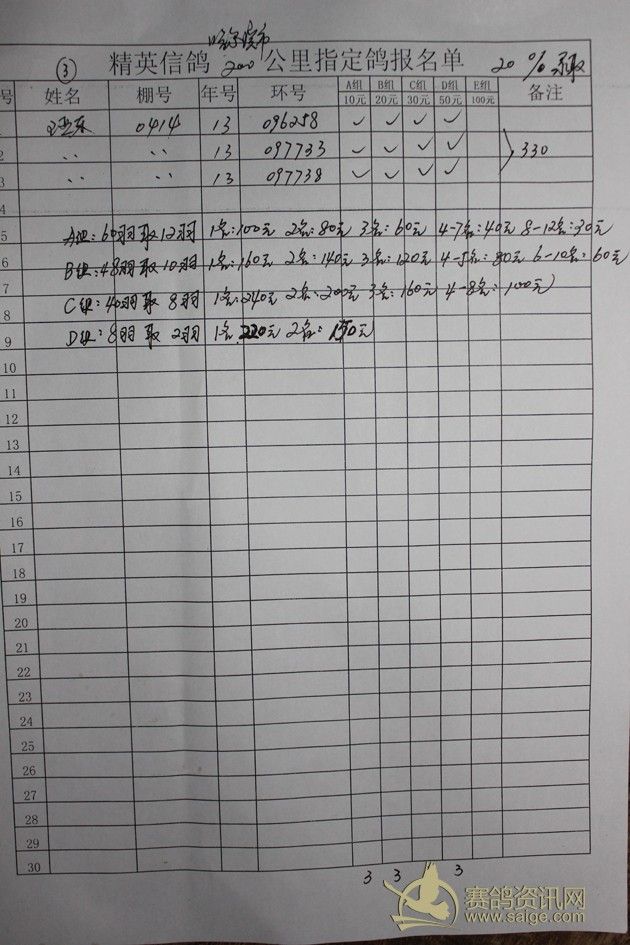 哈尔滨市
③ 精英信鸽 200 公里指定鸽报名单 20 % 录取
号 姓名 棚号 年号 环号 A组 B组 C组 D组 E组 备注
10元 20元 30元 50元 100元
0414 13 096258 ✓ ✓ ✓ ✓
2 〃 〃 13 097733 ✓ ✓ ✓ ✓ 330
3 〃 〃 13 097738 ✓ ✓ ✓ ✓
4
5 A组:60羽取12羽 1名:100元 2名:80元 3名:60元 4-7名:40元 8-12名:30元
6 B组:48羽取10羽 1名:160元 2名:140元 3名:120元 4-5名:80元 6-10名:60元
7
8 C组:40羽取8羽 1名:240元 2名:200元 3名:160元 4-8名:100元
9 D组:8羽取2羽 1名220元 2名:150元
10
11
12
13
14
15
16
17
18
19
20
21
22
23
24
25
26
27
28
29
30
3 3 3
赛鸽资讯网
www.saige.com